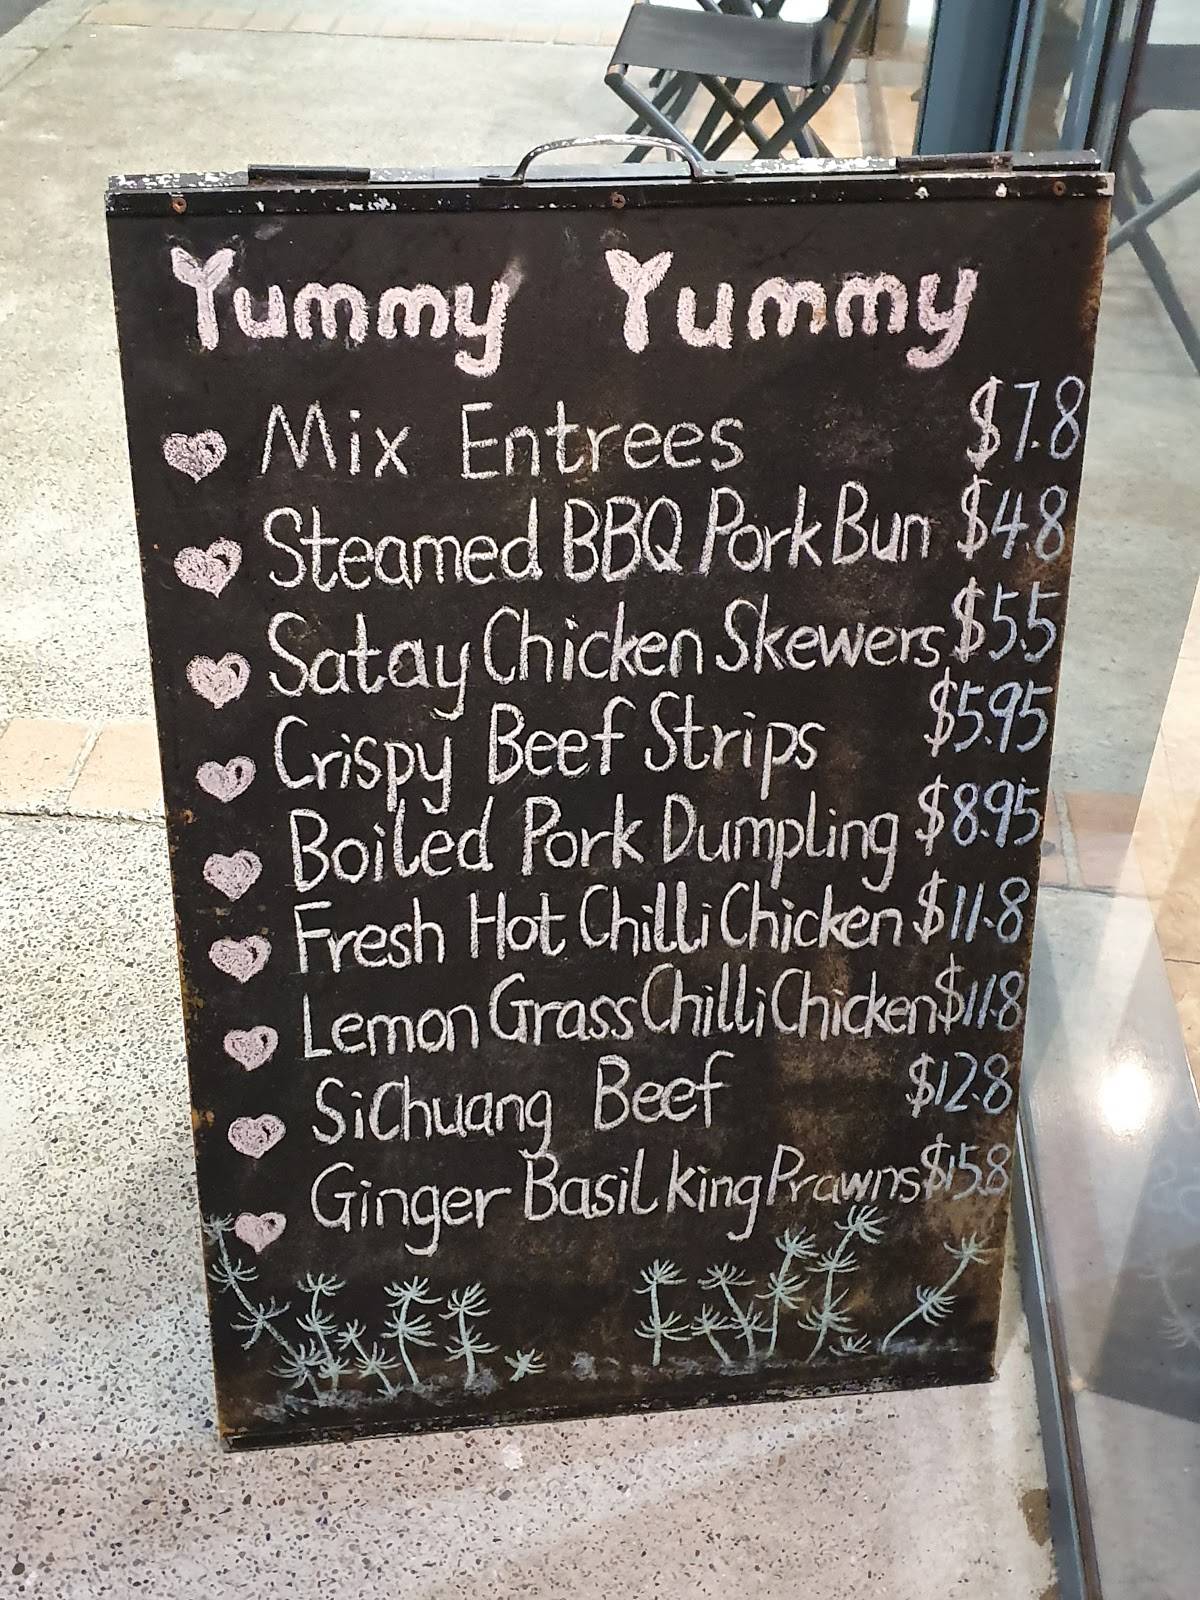 Yummy Yummy
Mix Entrees $7.8
Steamed BBQ Pork Bun $4.8
Satay Chicken Skewers $5.5
Crispy Beef Strips $5.95
Boiled Pork Dumpling $8.95
Fresh Hot Chilli Chicken $11.8
Lemon Grass Chilli Chicken $11.8
SiChuang Beef $12.8
Ginger Basil king Prawns $15.8